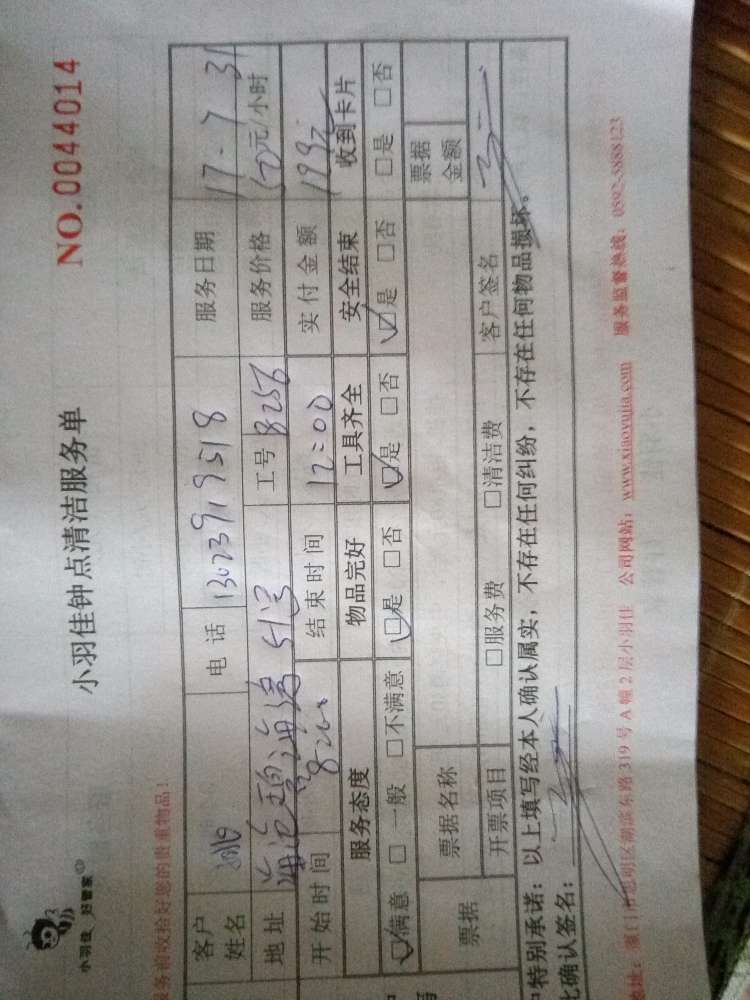 小羽佳 好管家
小羽佳钟点清洁服务单
NO.0044014
服务前收拾好您的贵重物品!
客户姓名 电话 13023919518 服务日期 17-7-31
地址 51号 工号 B256 服务价格 元/小时
开始时间 8:00 结束时间 12:00 实付金额 199元
服务态度 物品完好 工具齐全 安全结束 收到卡片
☑满意 □一般 □不满意 ☑是 □否 ☑是 □否 ☑是 □否 □是 □否
票据 票据名称 票据金额
开票项目 □服务费 □清洁费 客户签名
特别承诺:以上填写经本人确认属实,不存在任何纠纷,不存在任何物品损坏。
此确认签名:
地址:厦门市思明区湖滨东路319号A幢2层小羽佳 公司网站:www.xiaoyujia.com 服务监督热线:0592-5888123